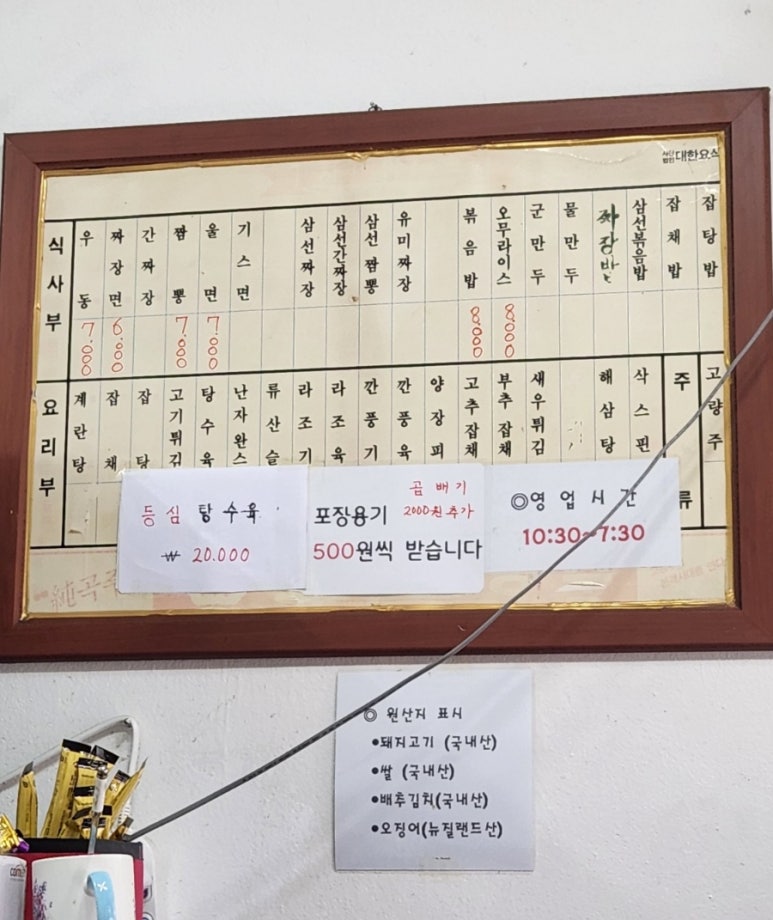 사단법인 대한요식
식사부
우동 7.000
짜장면 6.000
간짜장
짬뽕 7.000
울면 7.000
기스면
삼선짜장
삼선간짜장
삼선짬뽕
유미짜장
볶음밥 8.000
오무라이스 8.000
군만두
물만두
짜장밥
삼선볶음밥
잡채밥
잡탕밥
요리부
계란탕
잡채
잡탕
고기튀김
탕수육
난자완스
류산슬
라조기
라조육
깐풍기
깐풍육
양장피
고추잡채
부추잡채
새우튀김
해삼탕
삭스핀
주류
고량주
등심 탕수육
₩ 20.000
곱배기
2000원추가
포장용기
500원씩 받습니다
◎영업시간
10:30~7:30
◎ 원산지 표시
•돼지고기 (국내산)
•쌀 (국내산)
•배추김치(국내산)
•오징어(뉴질랜드산)